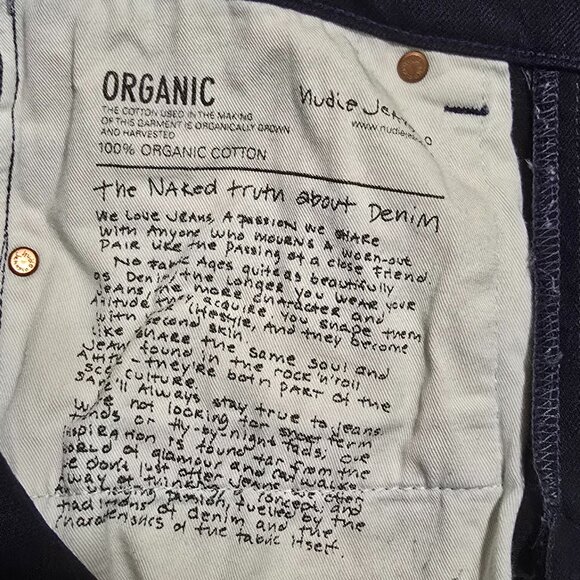 ORGANIC
THE COTTON USED IN THE MAKING
OF THIS GARMENT IS ORGANICALLY GROWN
AND HARVESTED
100% ORGANIC COTTON
Nudie Jeans
www.nudieje
The NAKED truth about DENIM
WE LOVE JEANS, A PASSION WE SHARE
WITH ANYONE WHO MOURNS A WORN-OUT
PAIR LIKE THE PASSING OF A CLOSE FRIEND.
NO FABRIC AGES QUITE AS BEAUTIFULLY
AS DENIM. THE LONGER YOU WEAR YOUR
JEANS THE MORE CHARACTER AND
ATTITUDE THEY ACQUIRE. YOU SHAPE THEM
WITH LIFESTYLE, AND THEY BECOME
LIKE SECOND SKIN.
JEANS SHARE THE SAME SOUL AND
FOUND IN THE ROCK'N'ROLL
THEY'RE BOTH PART OF THE
SAME CULTURE.
WE'LL ALWAYS STAY TRUE TO JEANS.
WE'RE NOT LOOKING FOR SHORT TERM
TRENDS OR FLY-BY-NIGHT FADS. OUR
INSPIRATION IS FOUND FAR FROM THE
WORLD OF GLAMOUR AND CATWALKS.
WE DON'T JUST OFFER JEANS WE OFFER
A WAY OF THINKING, A CONCEPT, AND
FUELLED BY THE
TRADITIONS OF DENIM AND THE
CHARACTERISTICS OF THE FABRIC ITSELF.